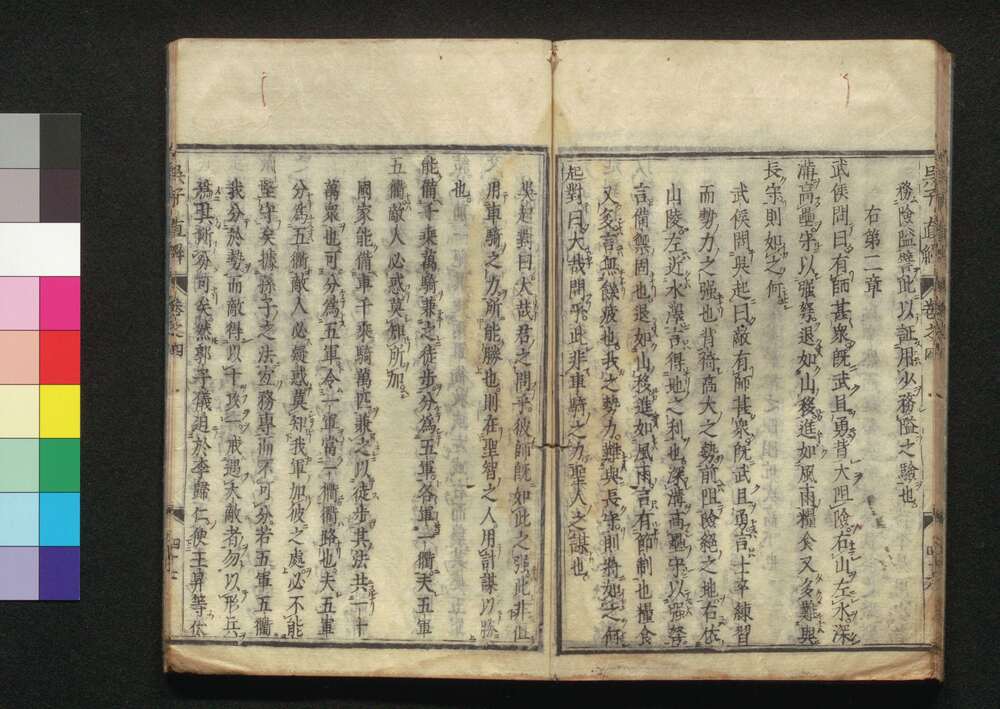 務險隘譬此以証用少務隘之驗也
右第二章
武侯問曰有師甚衆既武且勇背大阻險右山左水深
溝高壘守以强弩退如山移進如風雨糧食又多難與
長守則如之何
武侯問吳起曰敵有師甚衆既武且勇言士卒練習
而勢力之强也背猗高大之勢前阻險絶之地右依
山陵左近水澤言得地之利也深溝高壘守以强弩
言備禦固也退如山移進如風雨言有節制也糧食
又多言無餒疲也我之勢力難與長守則將如之何
起對曰大哉問乎此非車騎之力聖人之謀也
吳起對曰大哉君之問乎彼師既如此之强此非但
用軍騎之力所能勝也則在聖智之人用計謀以勝
也
能備千乘萬騎兼之徒步分爲五軍各軍一衢夫五軍
五衢敵人必惑莫知所加
國家能備車千乘騎萬匹兼之以徒步其法共一十
萬衆也可分爲五軍令一軍當一衢衢路也夫五軍
分爲五衢敵人必疑惑莫知我軍加彼之處必不能
堅守矣據孫子之法宜務專而不可分若五軍五衢
我分於勢而敵得以十攻一或遇大敵者勿以形兵
爲正則分可矣然郭子儀趨於李歸仁使王昇等依
吳子直解
卷之四
四十六
吳子直解
卷之四
四十七